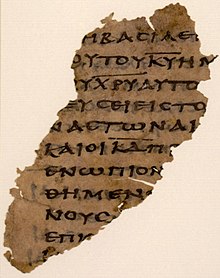 ΗΒΑϹΙΛΕ
ΟΥΤΟΥΚ̅Υ̅ΗΜ
ΥΧ̅Ρ̅Υ̅ΑΥΤΟ
ΕΥϹΕΙΕΙϹΤΟ
ΝΑϹΤΩΝΑΙ
ΚΑΙΟΙΚ̅Δ̅Π
ΕΝΩΠΙΟΝ
ΘΗΜΕΝ
ΝΟΥϹ
ΕΠΙ